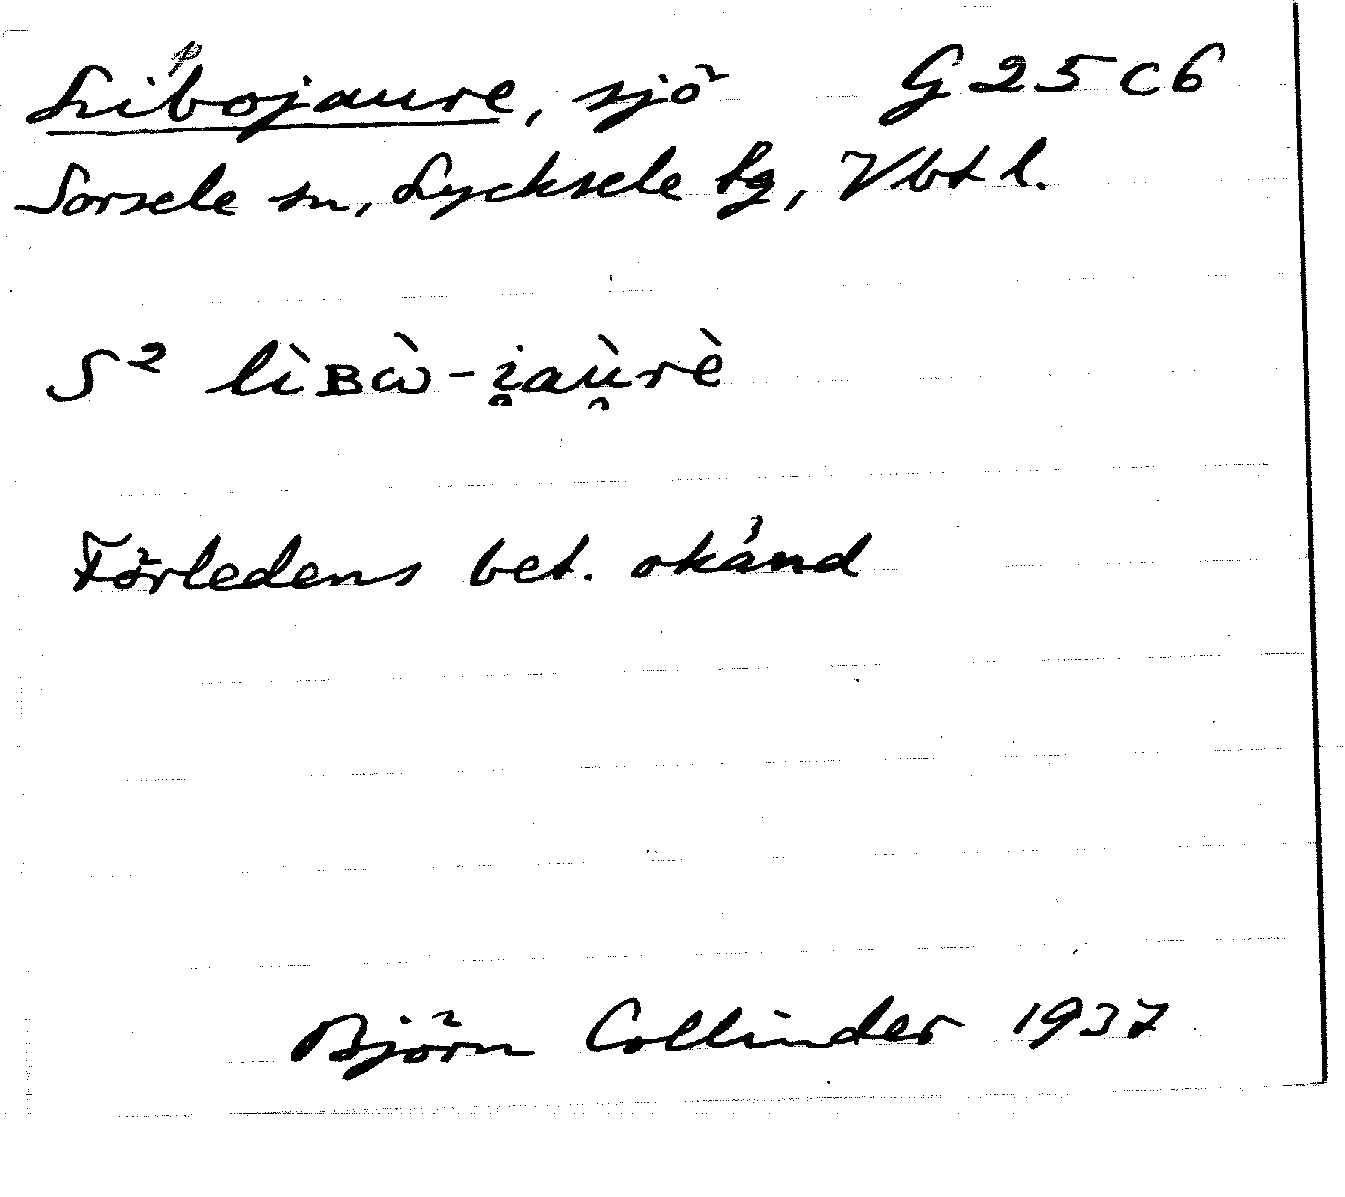 Libojaure, sjö G25C6
p
Sorsele sn, Lycksele lg, Vbt l.
S² lìʙὼ-i̯aù̯rè
Förledens bet. okänd
Björn Collinder 1937